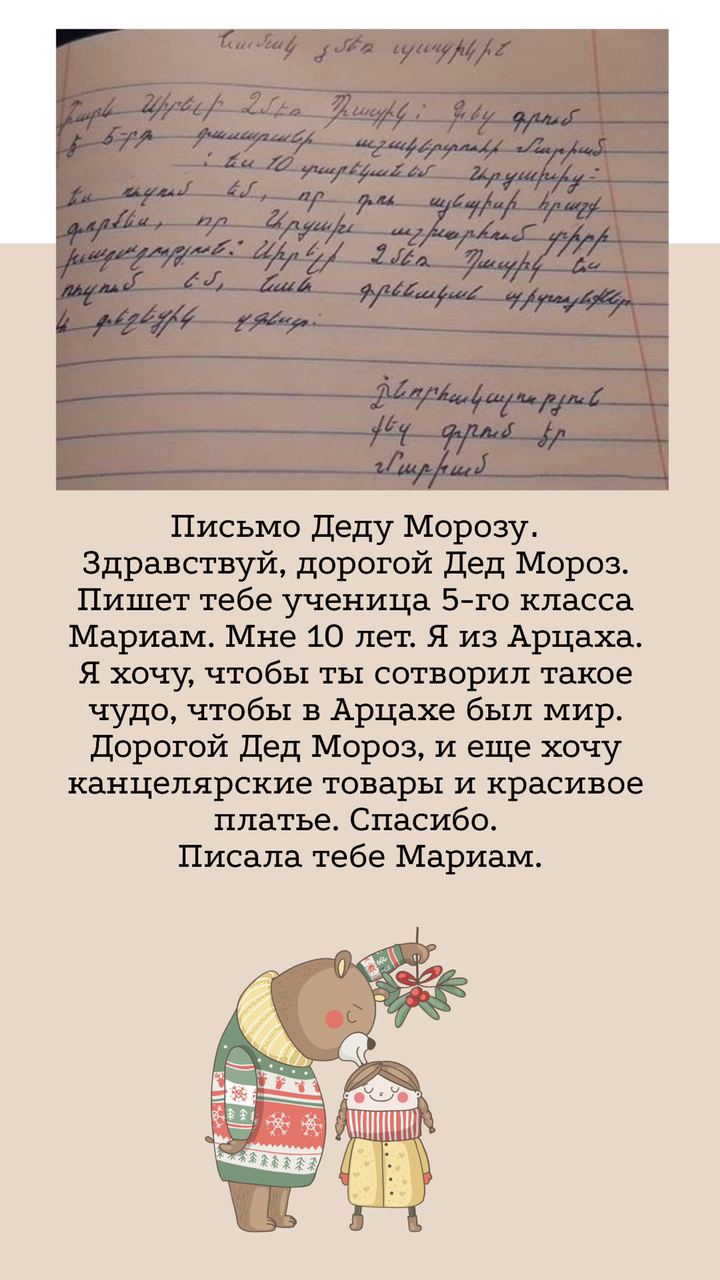 Նամակ ձմեռ պապիկին
Բարև Սիրելի Ձմեռ Պապիկ: Քեզ գրում
է 5-րդ դասարանի աշակերտուհի Մարիամ
: Ես 10 տարեկան եմ Արցախից:
Ես ուզում եմ, որ դու այնպիսի հրաշք
գործես, որ Արցախ աշխարհում տիրի
խաղաղություն: Սիրելի Ձմեռ Պապիկ ես
ուզում եմ, նաև գրենական պիտույքներ
և գեղեցիկ զգեստ:
Շնորհակալություն
քեզ գրում էր
Մարիամ
Письмо Деду Морозу.
Здравствуй, дорогой Дед Мороз.
Пишет тебе ученица 5-го класса
Мариам. Мне 10 лет. Я из Арцаха.
Я хочу, чтобы ты сотворил такое
чудо, чтобы в Арцахе был мир.
Дорогой Дед Мороз, и еще хочу
канцелярские товары и красивое
платье. Спасибо.
Писала тебе Мариам.